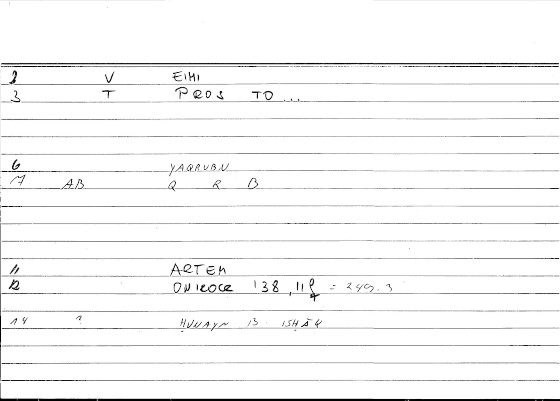 2 V EIMI
3 T PROS TO ...
6 YAQRUBU
7 AB Q R B
11 ARTEM
12 ONIROCR 138,11f = 249.3
14 ? ḤUNAYN B. ISḤĀQ